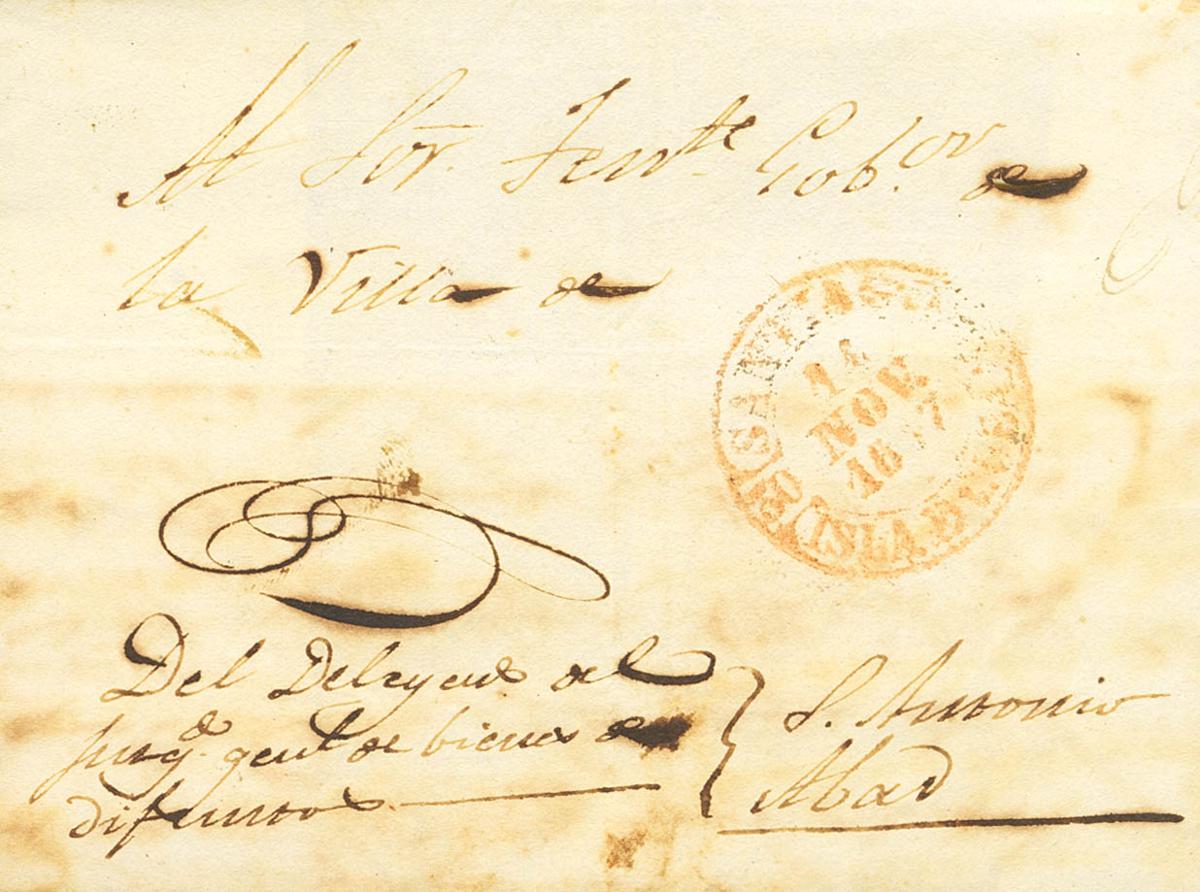 Al Sor. Tente. Gobor. de
la Villa de
11
NOV.
18 7
ISLA DE
Del Delegado del
Juzgdo. genl. de bienes de
difuntos
S. Antonio
Abad